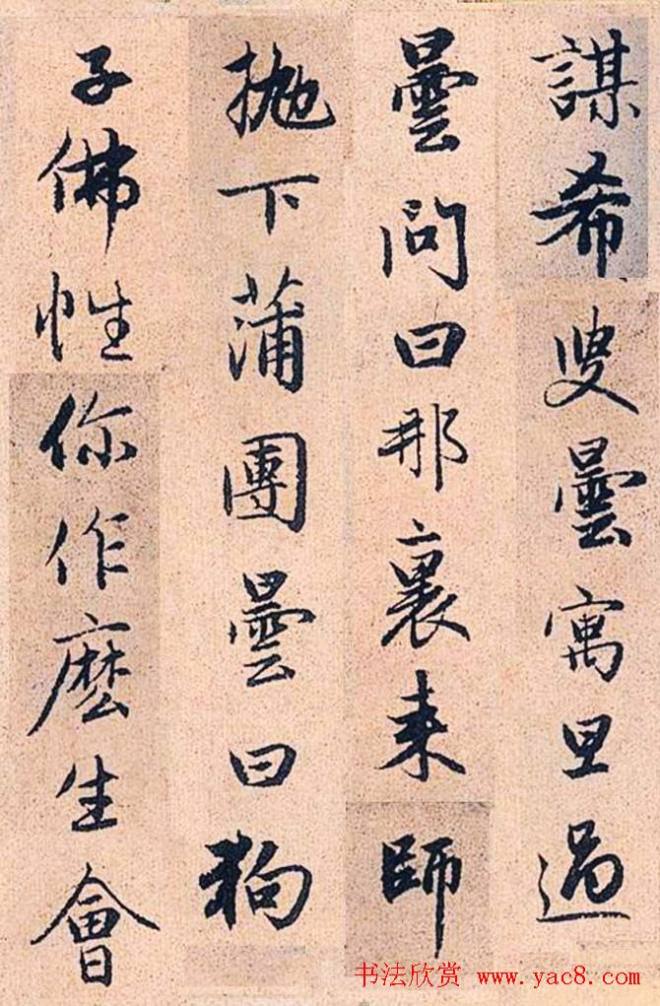 謀希叟曇寓旦過
曇問曰那裏来師
抛下蒲團曇曰狗
子佛性你作麽生會
书法欣赏 www.yac8.com